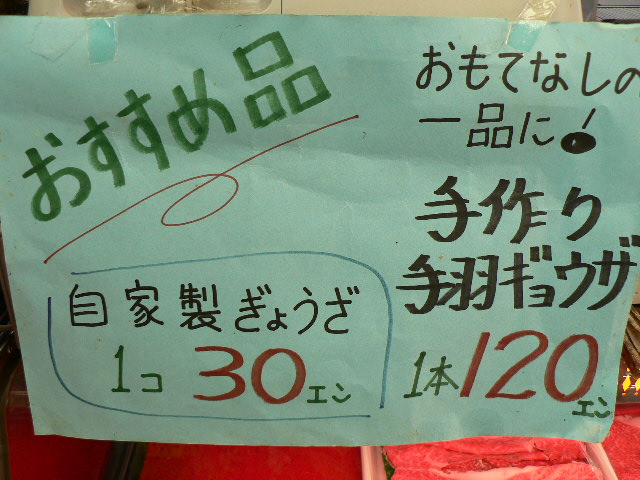 おすすめ品
自家製ぎょうざ
1コ 30エン
おもてなしの
一品に!
手作り
手羽ギョウザ
1本120エン